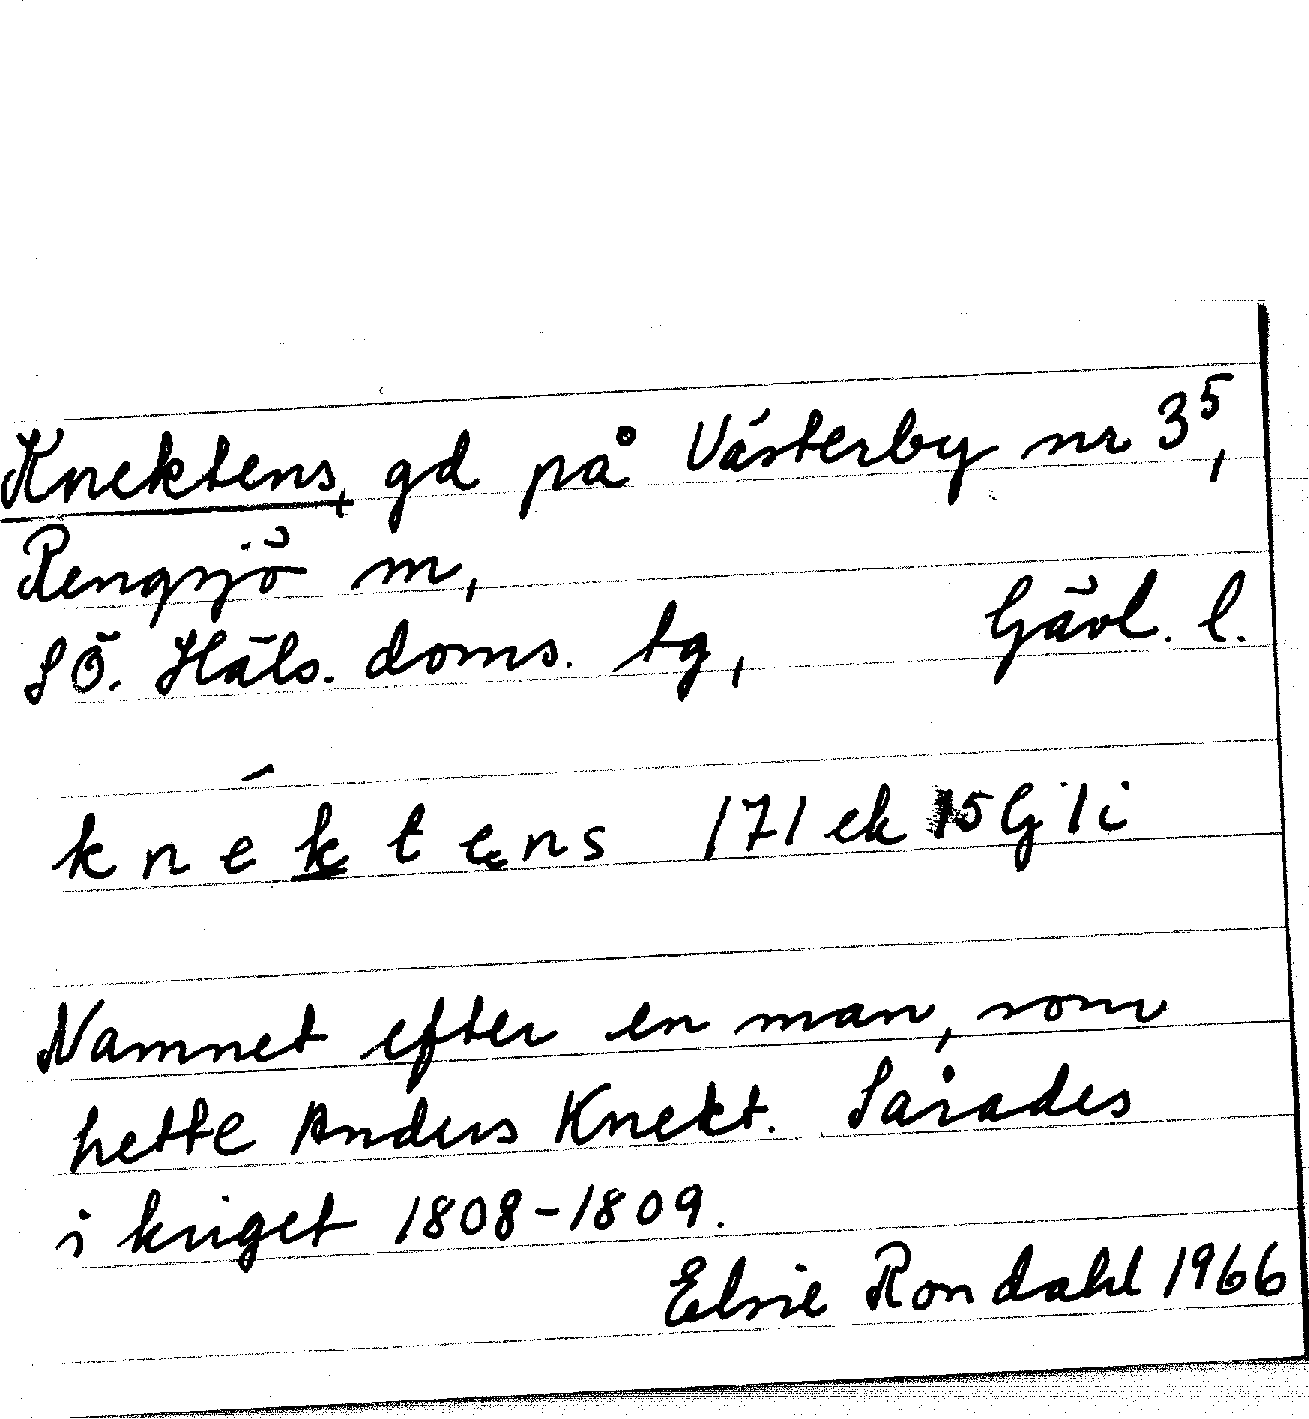 Knektens, gd på Västerby nr 3⁵,
Rengsjö sn,
SÖ. Häls. doms. tg, Gävl. l.
knéktens 171 ek 15 G 1 i
Namnet efter en man, som
hette Anders Knekt. Sårades
i kriget 1808-1809.
Elsie Rondahl 1966